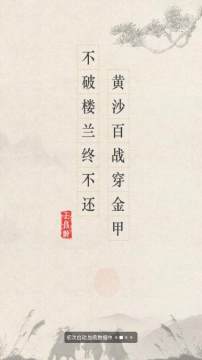 黄沙百战穿金甲
不破楼兰终不还
王昌龄